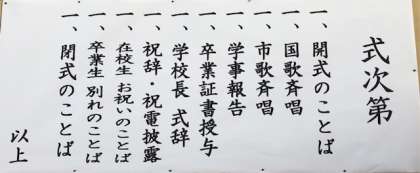 式次第
一、開式のことば
一、国歌斉唱
一、市歌斉唱
一、学事報告
一、卒業証書授与
一、学校長 式辞
一、祝辞・祝電披露
一、在校生 お祝いのことば
一、卒業生 別れのことば
一、閉式のことば
以上